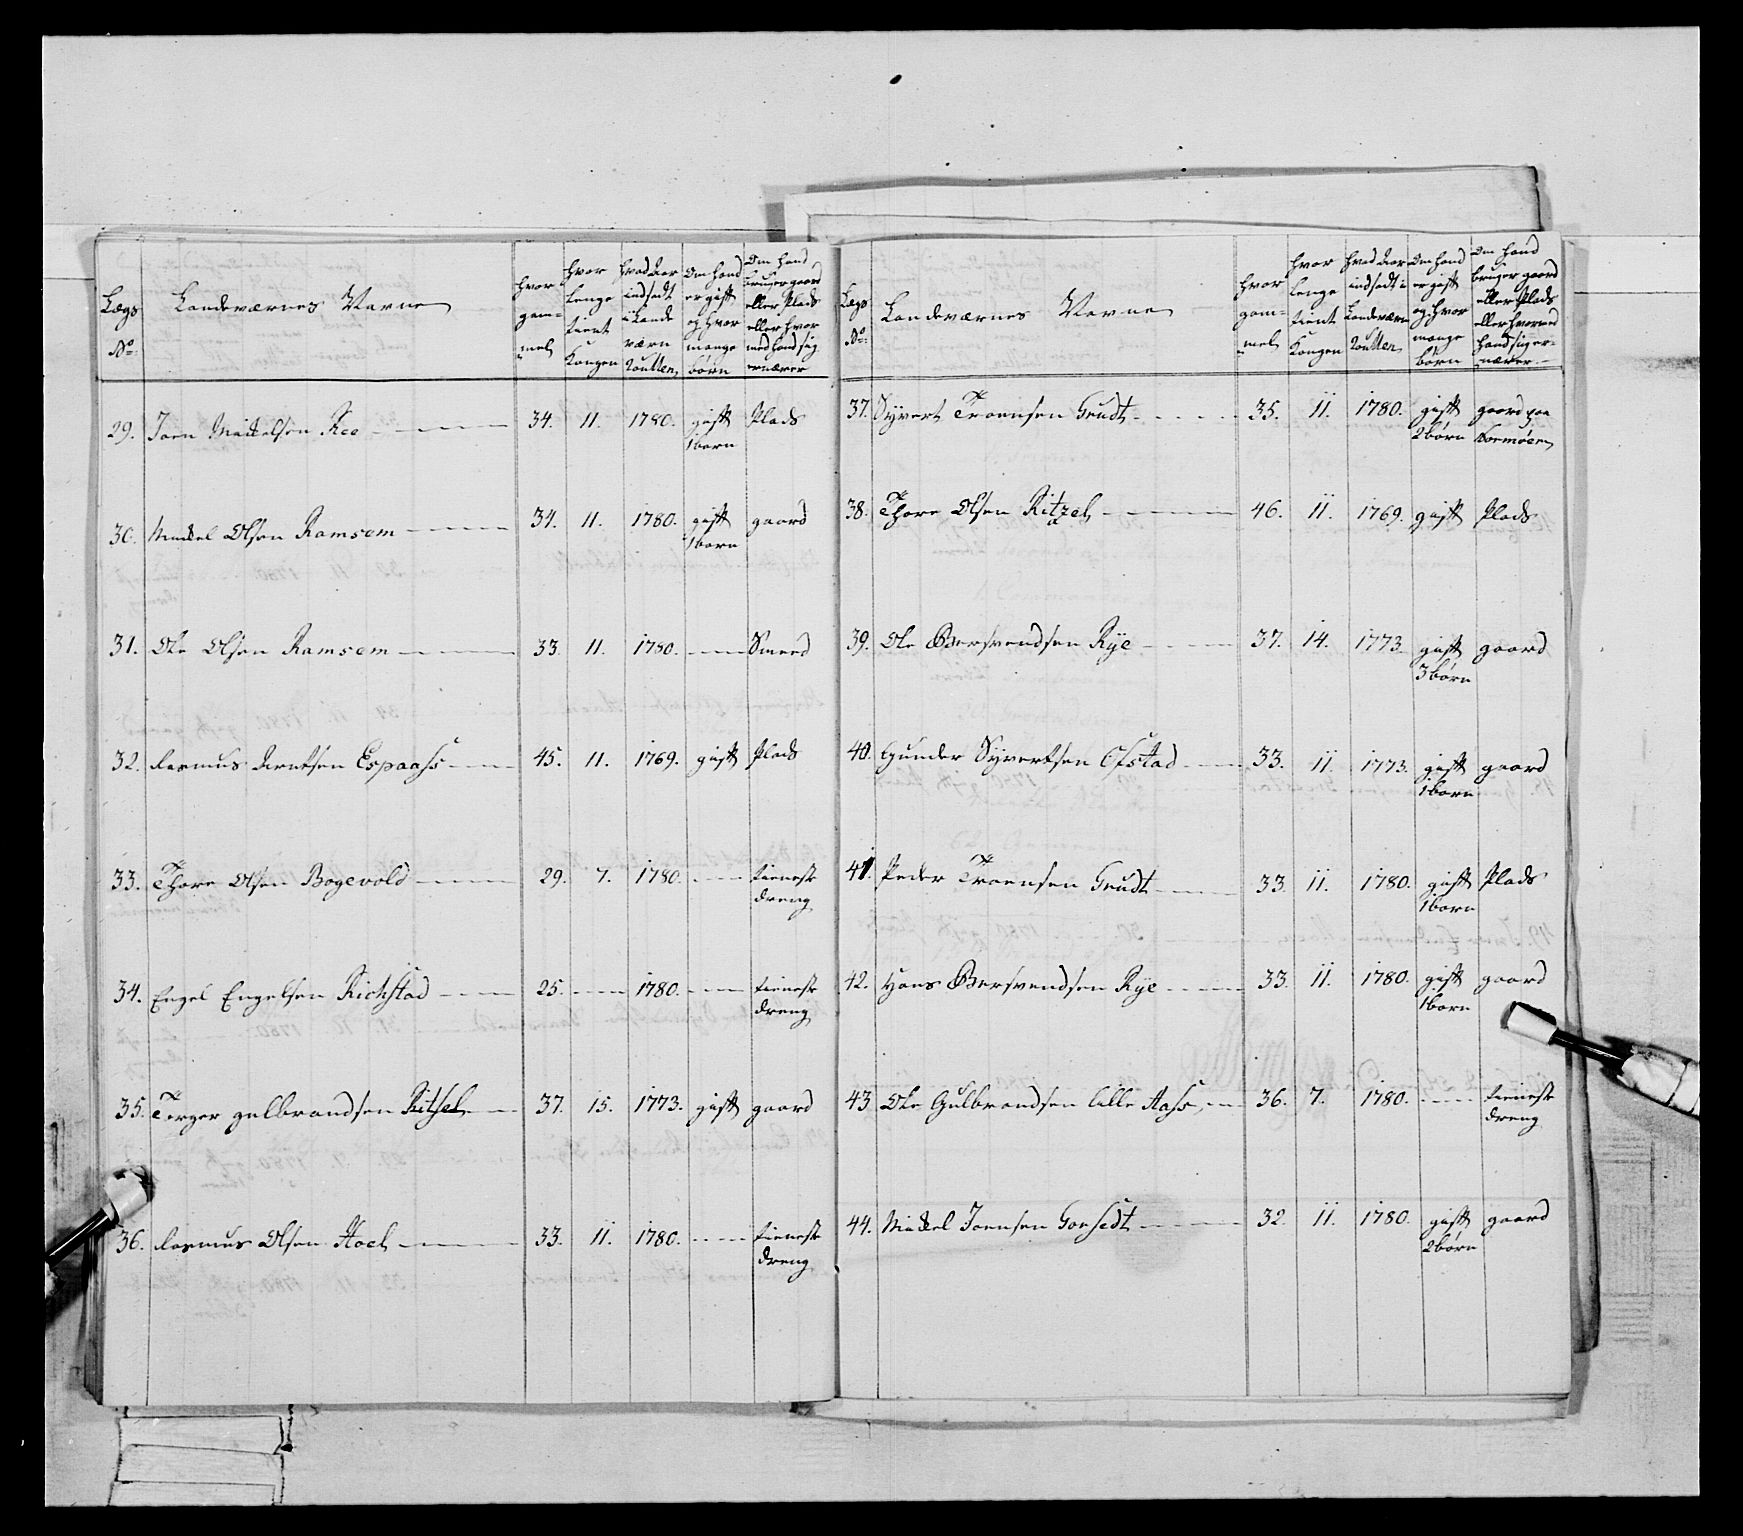 Lægs No:
Landeværnes Navne
hvor gam= mel
hvor lenge tient Kongen
hvad Aar indsadt i Lande værn Roullen
Om hand er gift og hvor mange børn
Om hand bruger gaard eller Plads eller hvor med hand sig ernærer
29. Joen Mickelsen Ree 34. 11. 1780. gift Plads
1 barn
30. Mickel Olsen Ramsem 34. 11. 1780. gift gaard
1 barn
31. Ole Olsen Ramsem 33. 11. 1780. Smed
32. Rasmus Arntsen Espaass 45. 11. 1769. gift Plads
33. Thore Olsen Bogevold 29. 7. 1780. tieneste
dreng
34. Engel Engelsen Richstad 25. 1780. tieneste
dreng
35. Torger gulbrandsen Ritsel 37. 15. 1773. gift gaard
36. Rasmus Olsen Hoel 33. 11. 1780. tieneste
dreng
Lægs No:
Landeværnes Navne
hvor gam= mel
hvor lenge tient Kongen
hvad Aar indsadt i Landeværn Roullen
Om hand er gift og hvor mange børn
Om hand bruger gaard eller Plads eller hvormed hand sig er= nærer
37. Syvert Troensen Grudt 35. 11. 1780. gift gaard paa
2 børn Normøer
38. Thore Olsen Ritzel 46. 11. 1769. gift Plads
39. Ole Bersvendsen Rye 37. 14. 1773. gift gaard
3 børn
40. Gunder Syvertsen Ofstad 33. 11. 1773. gift gaard
1 barn
41. Peder Troensen Grudt 33. 11. 1780. gift Plads
1 barn
42. Hans Bersvendsen Rye 33. 11. 1780. gift gaard
1 barn
43. Ole Gulbrandsen lille Aass 36. 7. 1780. tieneste
dreng
44. Mickel Joensen Gorsedt 32. 11. 1780. gift gaard
2 børn